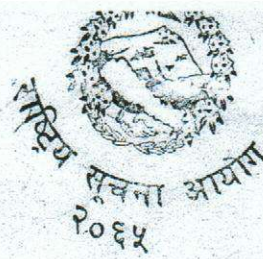 राष्ट्रिय सूचना आयोग
२०६५